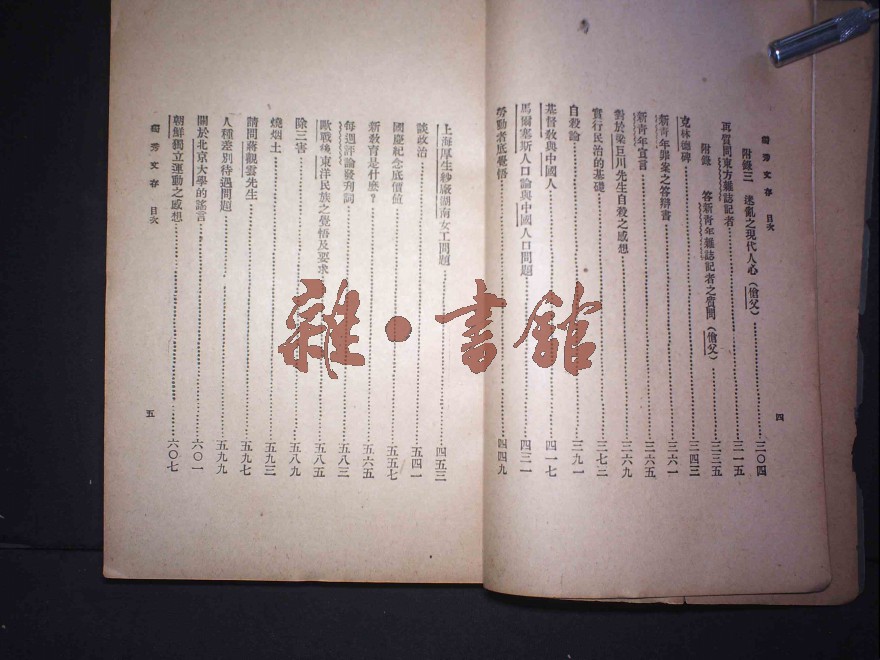 獨秀文存 目次
附錄三 迷亂之現代人心（傖父）……三〇四
再質問東方雜誌記者……三一五
附錄 答新青年雜誌記者之質問（傖父）……三三五
克林德碑……三四三
新青年罪案之答辯書……三六一
新青年宣言……三六五
對於梁巨川先生自殺之感想……三六九
實行民治的基礎……三七三
自殺論……三九一
基督敎與中國人……四一七
馬爾塞斯人口論與中國人口問題……四三一
勞動者底覺悟……四四九
四
上海厚生紗廠湖南女工問題……四五三
談政治……五四一
國慶紀念底價値……五五七
新敎育是什麽？……五六五
每週評論發刋詞……五八三
歐戰後東洋民族之覺悟及要求……五八五
除三害……五八九
燒烟土……五九三
請問蔣觀雲先生……五九七
人種差別待遇問題……五九九
關於北京大學的謠言……六〇一
朝鮮獨立運動之感想……六〇七
獨秀文存 目次
五
雜·書館